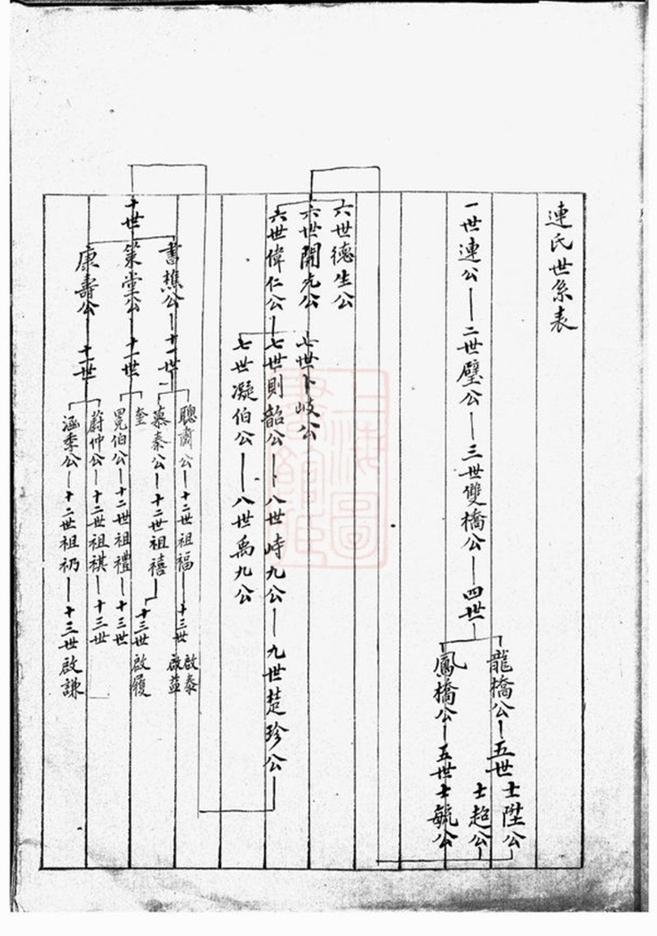 連氏世系表
一世連公—二世璧公—三世雙橋公—四世
龍橋公—五世士陞公
士超公
鳳橋公—五世士毓公
六世德生公
六世開先公 七世卜岐公
六世偉仁公—七世則韶公—八世峙九公—九世楚珍公
七世凝伯公—八世禹九公
十世
書樵公—十一世
聰肅公—十二世祖福—十三世啟泰
啟益
慕秦公—十二世祖禧—十三世啟履
策堂公—十一世
奎
冕伯公—十二世祖禮—十三世
康壽公—十一世
蔚仲公—十二世祖祺—十三世
涵季公—十二世祖礽—十三世啟謙
上海圖書館藏